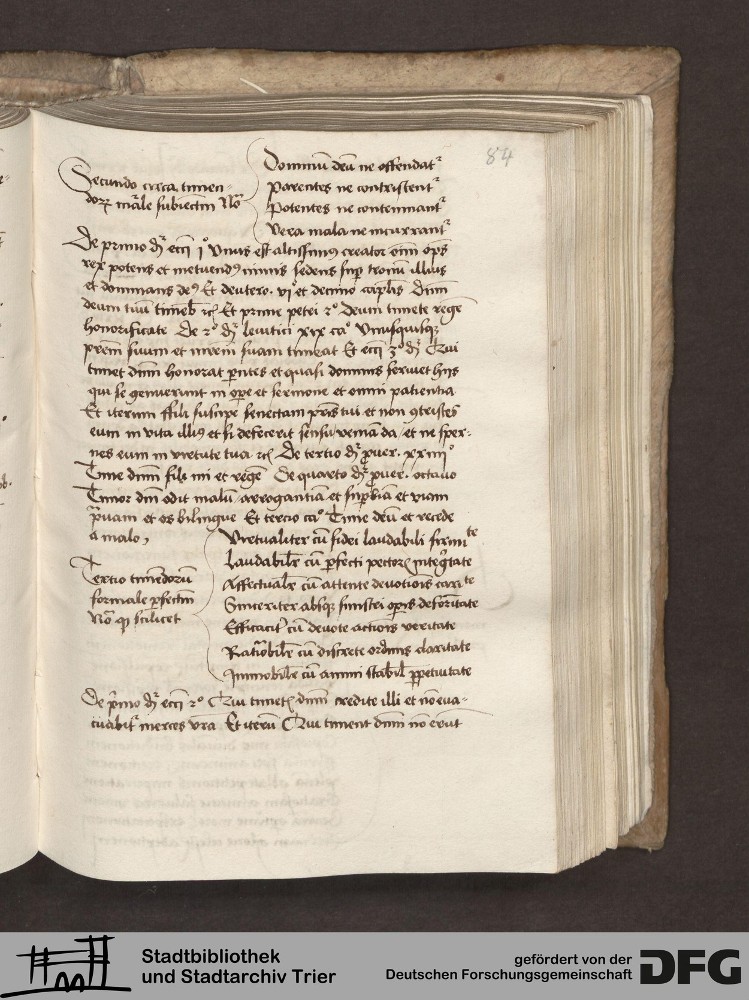 84
Secundo circa timen-
dorꝝ mãle subiectm Nõ
Dominũ deũ ne offendatᷣ
Parentes ne contristentᷣ
Potentes ne contemnantᷣ
Vera mala ne incurrantᷣ
De primo dꝫ ecci 1° Vnus est altissimꝰ creator oim ops
rex potens et metuendꝰ nimis sedens sup tronũ illius
et dominans deꝰ Et deutero. vi° et decimo ciplis Dnm
deum tuũ timeb ꝛc̃ Et prime petri 2° Deum timete regẽ
honorificate De 2° dꝫ leuitici xix ca° Vnusquisqꝫ
prẽm suum et mrẽm suam timeat Et ecci 3° dꝫ Qui
timet dnm honorat pntes et quasi dominis seruiet hijs
qui se genuerunt in ope et sermone et omni patientia
Et iterum ffili suscipe senectam prĩs tui et non ꝯtristes
eum in vita illiꝰ et si defecerit sensu veniã da / et ne sper-
nes eum in virtute tua ꝛc̃ De tertio dꝫ prouer. xxiiii°
Time dnm fili mi et regẽ De quarto dꝫ prouer. octauo
Timor dni odit malũ arrogantiã et supbiã et viam
prauam et os bilingue Et tercio ca° Time deũ et recede
a malo,
Tertio timẽdorũ
formale pfectm
Nõ qp scilicet
Virtualiter cũ fidei laudabili firmite
Laudabilr̃ cũ pfecti pectorꝭ integitate
Affectualr̃ cũ attente deuotiõis caritate
Sinceriter absqꝫ sinistri opis deformitate
Efficaciť cũ deuote actiõis veritate
Ratiõbilr̃ cũ discrete ordinis claritate
Immobilr̃ cũ animi stabili ppetuitate
De primo dꝫ ecci 2° Qui timetꝭ dnm credite illi et nõ eua-
cuabitᷣ merces vrã Et iterũ Qui timent dnm nõ erũt
Stadtbibliothek
und Stadtarchiv Trier
gefördert von der
Deutschen Forschungsgemeinschaft
DFG